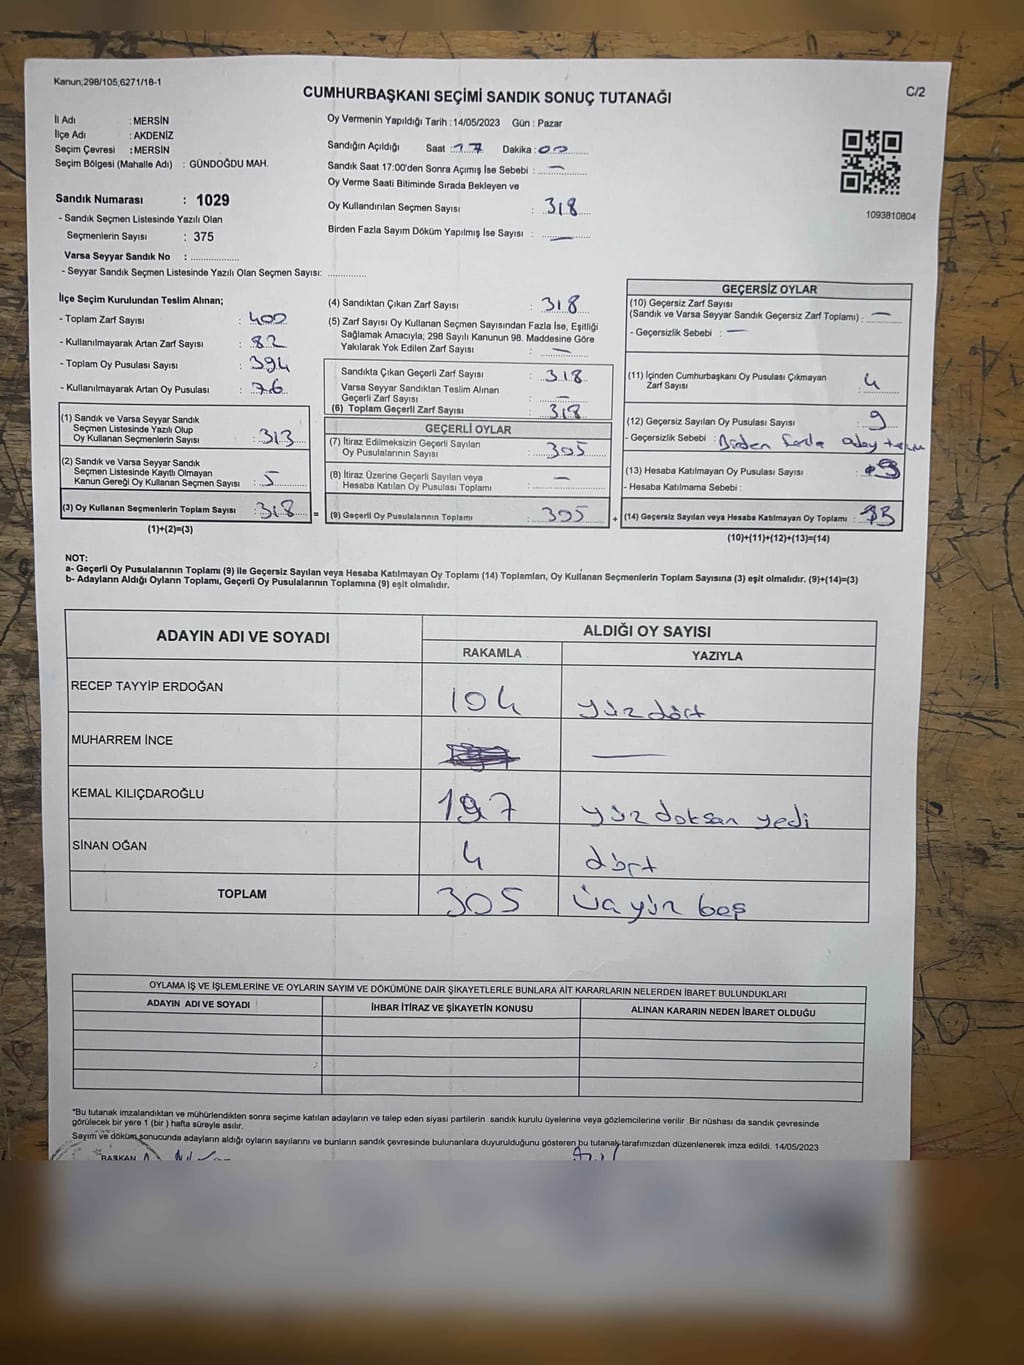 Kanun;298/105,6271/18-1
C/2
CUMHURBAŞKANI SEÇİMİ SANDIK SONUÇ TUTANAĞI
İl Adı : MERSİN
İlçe Adı : AKDENİZ
Seçim Çevresi : MERSİN
Seçim Bölgesi (Mahalle Adı) : GÜNDOĞDU MAH.
Oy Vermenin Yapıldığı Tarih : 14/05/2023 Gün : Pazar
Sandığın Açıldığı Saat : 17 Dakika : 00
Sandık Saat 17:00'den Sonra Açımış İse Sebebi : —
Oy Verme Saati Bitiminde Sırada Bekleyen ve
Oy Kullandırılan Seçmen Sayısı : 318
Birden Fazla Sayım Döküm Yapılmış İse Sayısı : —
1093810804
Sandık Numarası : 1029
- Sandık Seçmen Listesinde Yazılı Olan
Seçmenlerin Sayısı : 375
Varsa Seyyar Sandık No : ....................
- Seyyar Sandık Seçmen Listesinde Yazılı Olan Seçmen Sayısı: ................
İlçe Seçim Kurulundan Teslim Alınan;
- Toplam Zarf Sayısı : 400
- Kullanılmayarak Artan Zarf Sayısı : 82
- Toplam Oy Pusulası Sayısı : 394
- Kullanılmayarak Artan Oy Pusulası : 76
(1) Sandık ve Varsa Seyyar Sandık
Seçmen Listesinde Yazılı Olup
Oy Kullanan Seçmenlerin Sayısı : 313
(2) Sandık ve Varsa Seyyar Sandık
Seçmen Listesinde Kayıtlı Olmayan
Kanun Gereği Oy Kullanan Seçmen Sayısı : 5
(3) Oy Kullanan Seçmenlerin Toplam Sayısı : 318 =
(1)+(2)=(3)
(4) Sandıktan Çıkan Zarf Sayısı : 318
(5) Zarf Sayısı Oy Kullanan Seçmen Sayısından Fazla İse, Eşitliği
Sağlamak Amacıyla; 298 Sayılı Kanunun 98. Maddesine Göre
Yakılarak Yok Edilen Zarf Sayısı : —
Sandıkta Çıkan Geçerli Zarf Sayısı : 318
Varsa Seyyar Sandıktan Teslim Alınan
Geçerli Zarf Sayısı : —
(6) Toplam Geçerli Zarf Sayısı : 318
GEÇERLİ OYLAR
(7) İtiraz Edilmeksizin Geçerli Sayılan
Oy Pusulalarının Sayısı : 305
(8) İtiraz Üzerine Geçerli Sayılan veya
Hesaba Katılan Oy Pusulası Toplamı : —
(9) Geçerli Oy Pusulalarının Toplamı : 305 +
GEÇERSİZ OYLAR
(10) Geçersiz Zarf Sayısı
(Sandık ve Varsa Seyyar Sandık Geçersiz Zarf Toplamı) : —
- Geçersizlik Sebebi : —
(11) İçinden Cumhurbaşkanı Oy Pusulası Çıkmayan
Zarf Sayısı : 4
(12) Geçersiz Sayılan Oy Pusulası Sayısı : 9
- Geçersizlik Sebebi : Birden fazla aday
(13) Hesaba Katılmayan Oy Pusulası Sayısı :
- Hesaba Katılmama Sebebi :
(14) Geçersiz Sayılan veya Hesaba Katılmayan Oy Toplamı : 13
(10)+(11)+(12)+(13)=(14)
NOT:
a- Geçerli Oy Pusulalarının Toplamı (9) ile Geçersiz Sayılan veya Hesaba Katılmayan Oy Toplamı (14) Toplamları, Oy Kullanan Seçmenlerin Toplam Sayısına (3) eşit olmalıdır. (9)+(14)=(3)
b- Adayların Aldığı Oyların Toplamı, Geçerli Oy Pusulalarının Toplamına (9) eşit olmalıdır.
ADAYIN ADI VE SOYADI
ALDIĞI OY SAYISI
RAKAMLA YAZIYLA
RECEP TAYYİP ERDOĞAN 104 yüz dört
MUHARREM İNCE —
KEMAL KILIÇDAROĞLU 197 yüz doksan yedi
SİNAN OĞAN 4 dört
TOPLAM 305 Üç yüz beş
OYLAMA İŞ VE İŞLEMLERİNE VE OYLARIN SAYIM VE DÖKÜMÜNE DAİR ŞİKAYETLERLE BUNLARA AİT KARARLARIN NELERDEN İBARET BULUNDUKLARI
ADAYIN ADI VE SOYADI İHBAR İTİRAZ VE ŞİKAYETİN KONUSU ALINAN KARARIN NEDEN İBARET OLDUĞU
*Bu tutanak imzalandıktan ve mühürlendikten sonra seçime katılan adayların ve talep eden siyasi partilerin sandık kurulu üyelerine veya gözlemcilerine verilir. Bir nüshası da sandık çevresinde
görülecek bir yere 1 (bir ) hafta süreyle asılır.
Sayım ve döküm sonucunda adayların aldığı oyların sayılarını ve bunların sandık çevresinde bulunanlara duyurulduğunu gösteren bu tutanak tarafımızdan düzenlenerek imza edildi. 14/05/2023
BAŞKAN